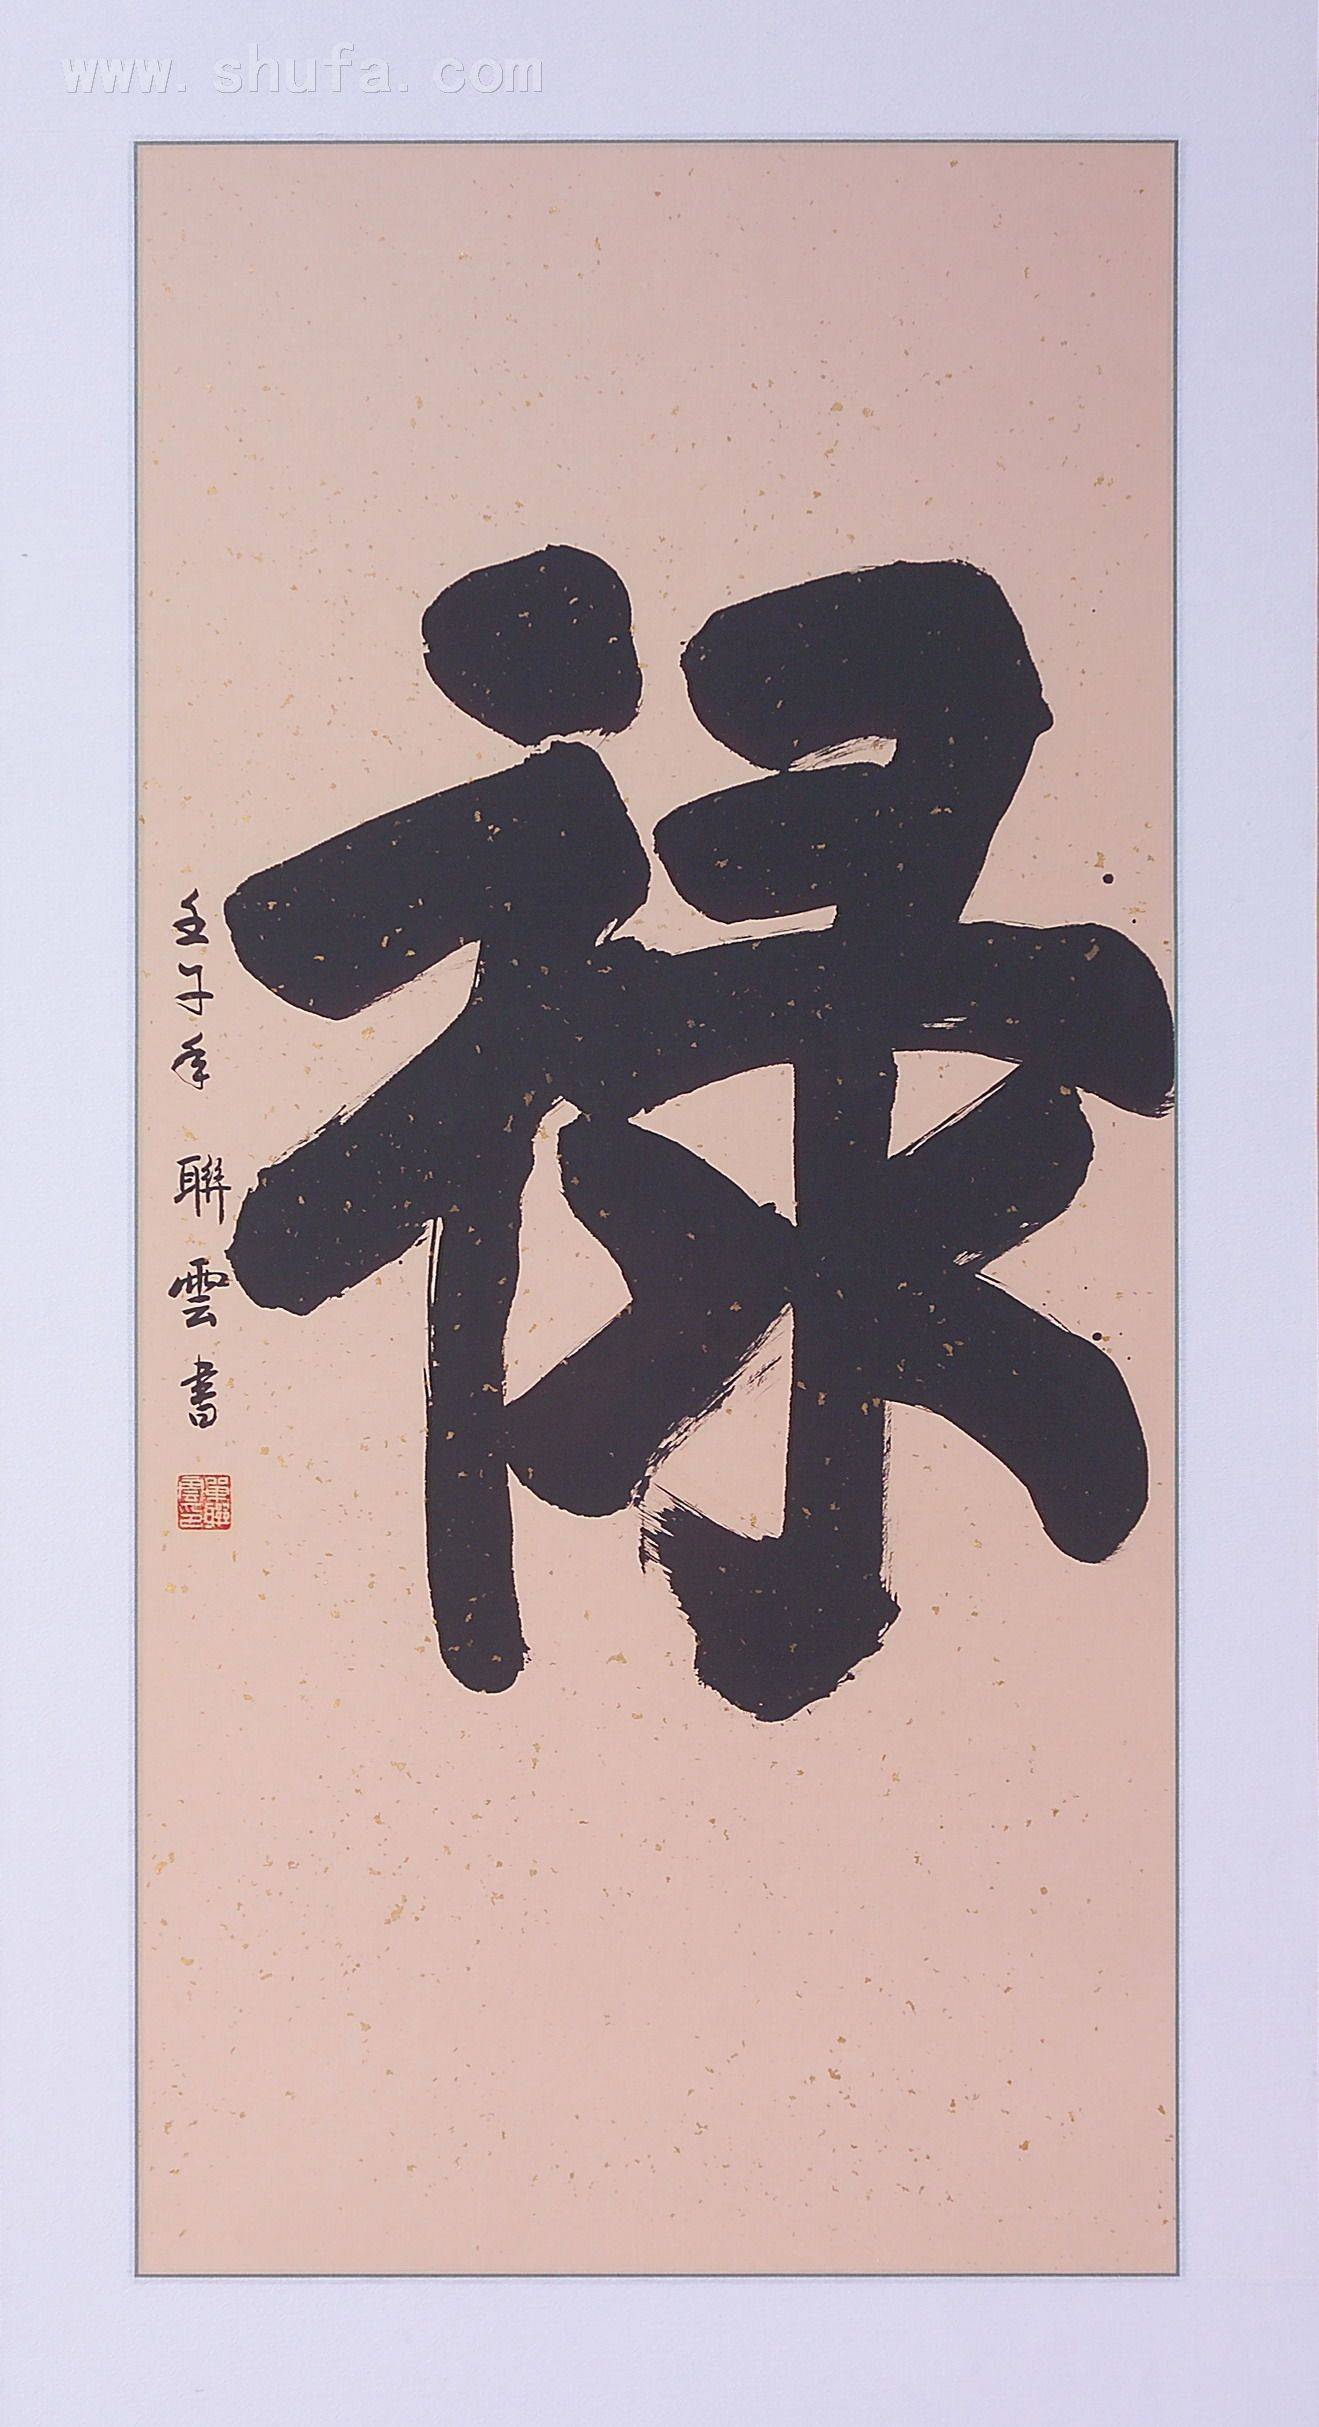 www.shufa.com
禄
壬子年 聯雲書